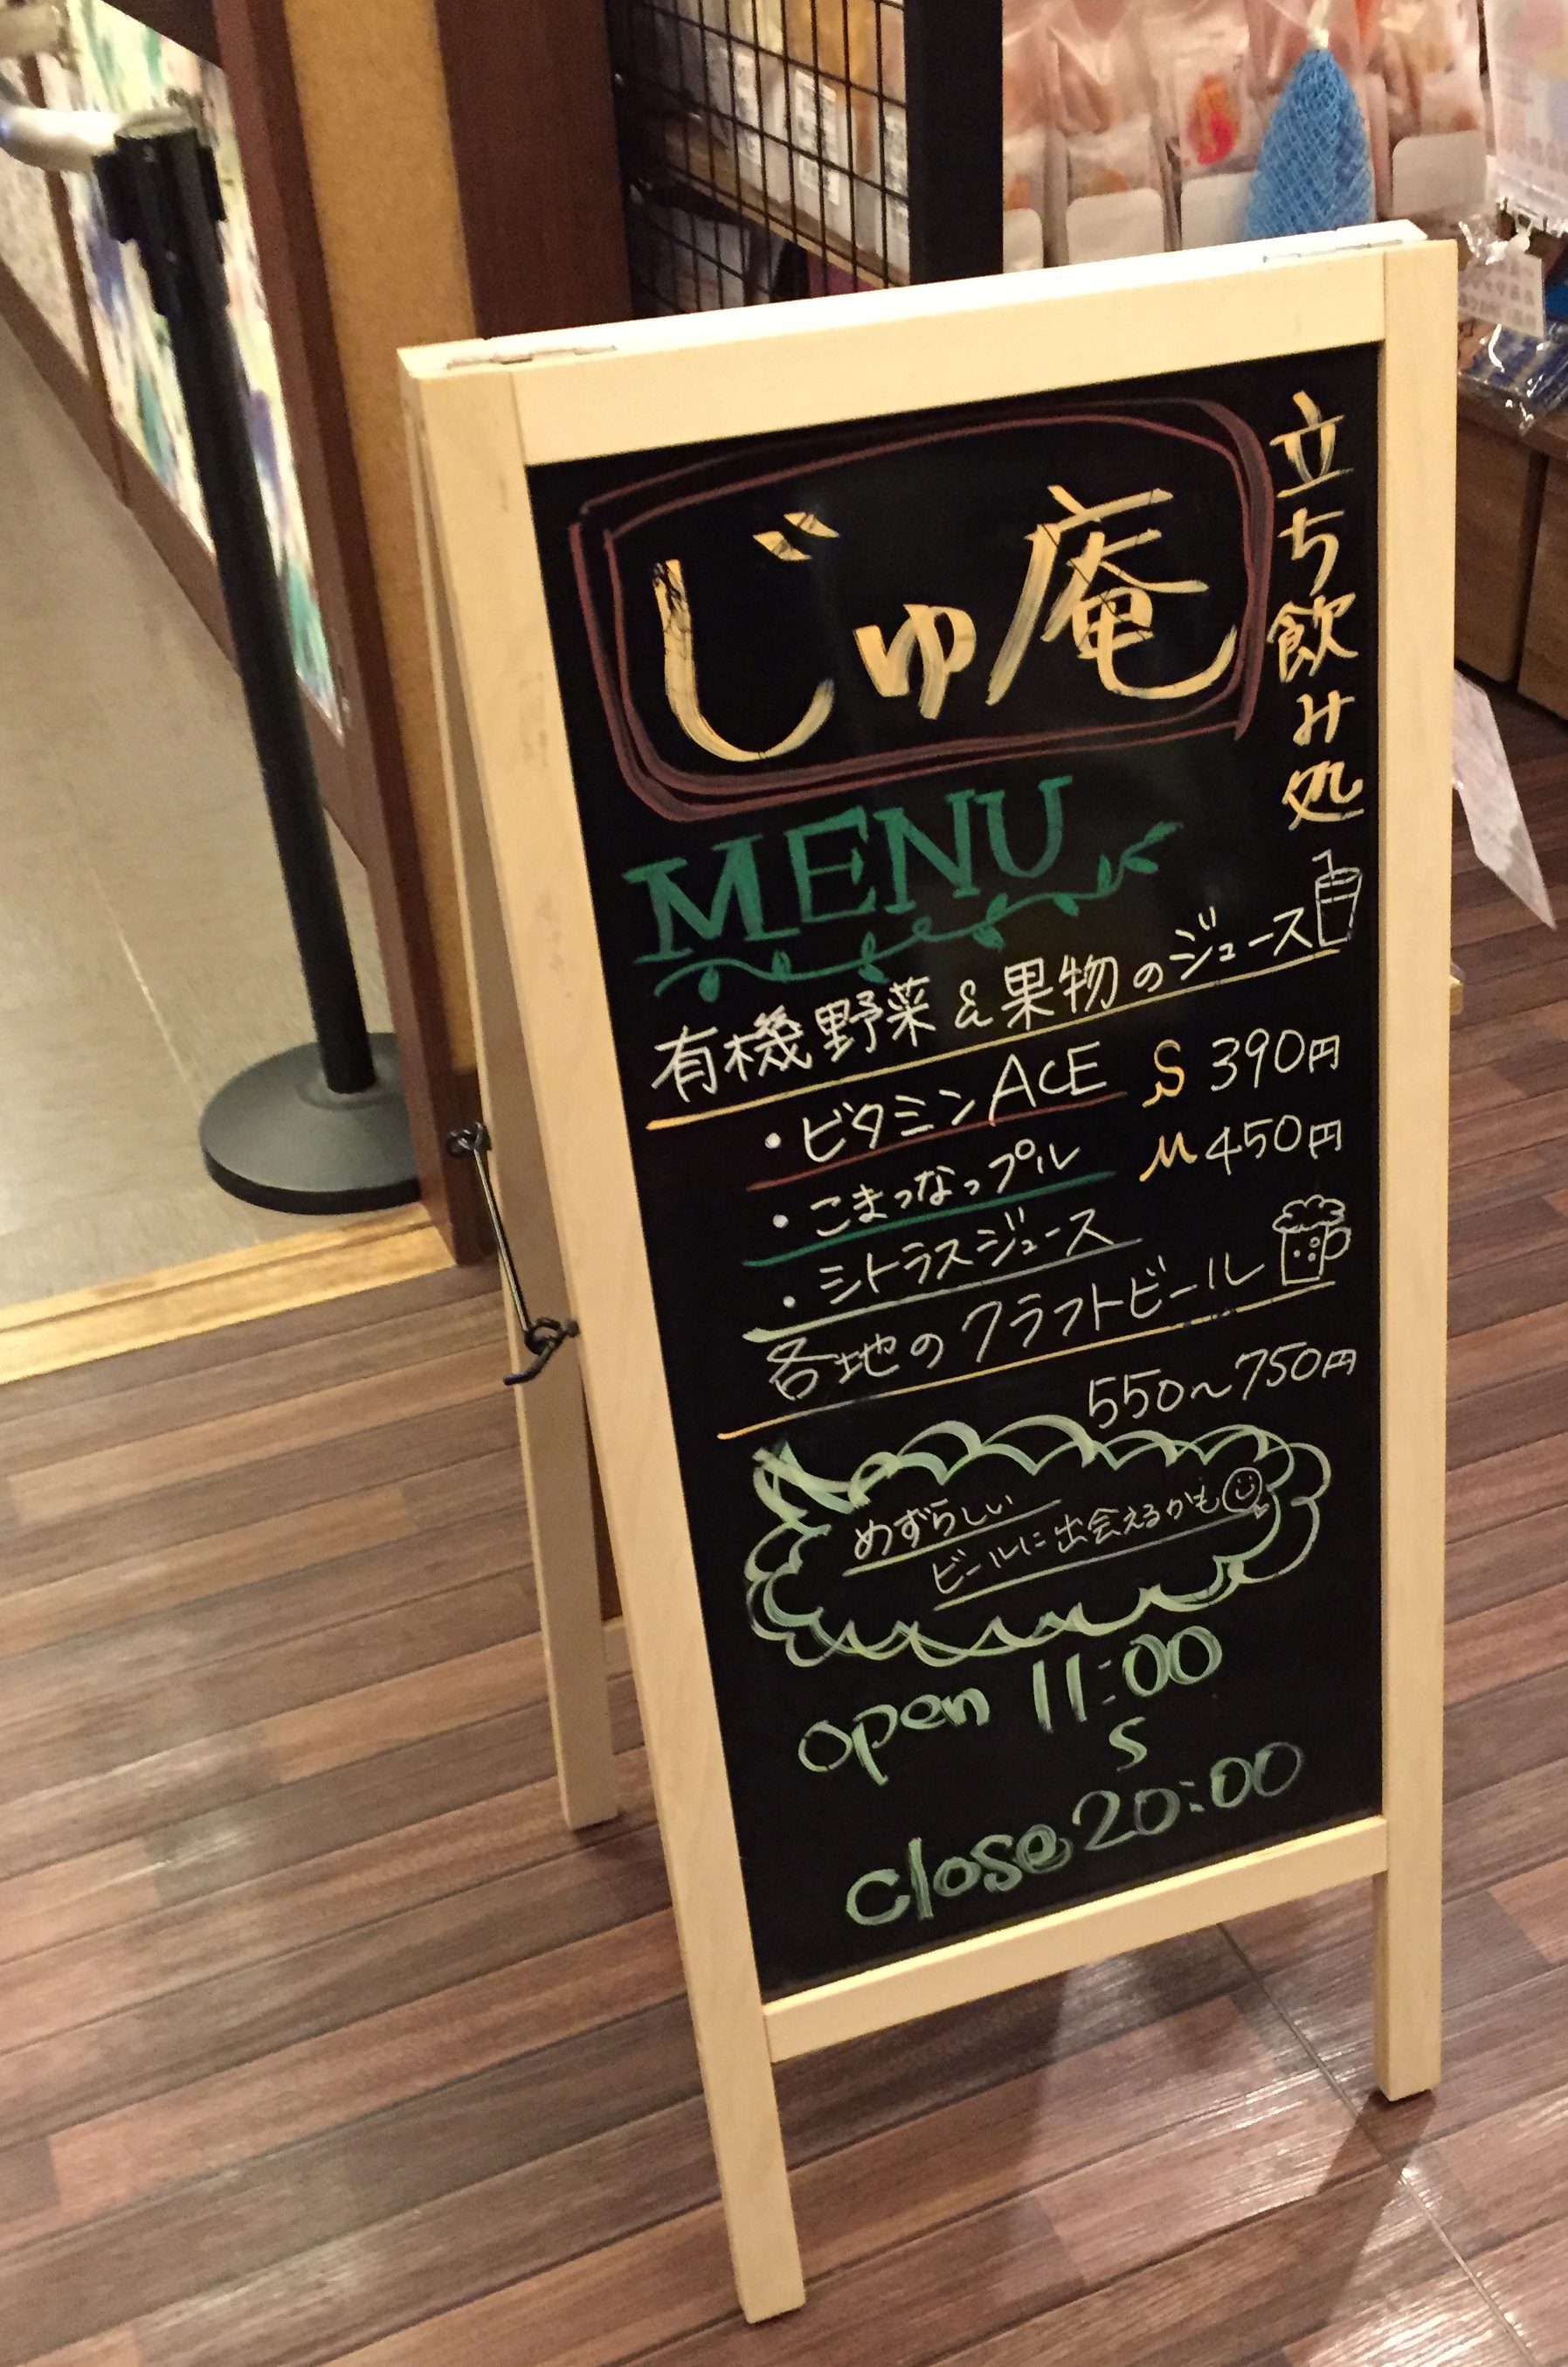 立ち飲み処
じゅ庵
MENU
有機野菜&果物のジュース
・ビタミンACE S 390円
・こまつなっプル M 450円
・シトラスジュース
各地のクラフトビール
550~750円
めずらしい
ビールに出会えるかも
open 11:00
~
close 20:00